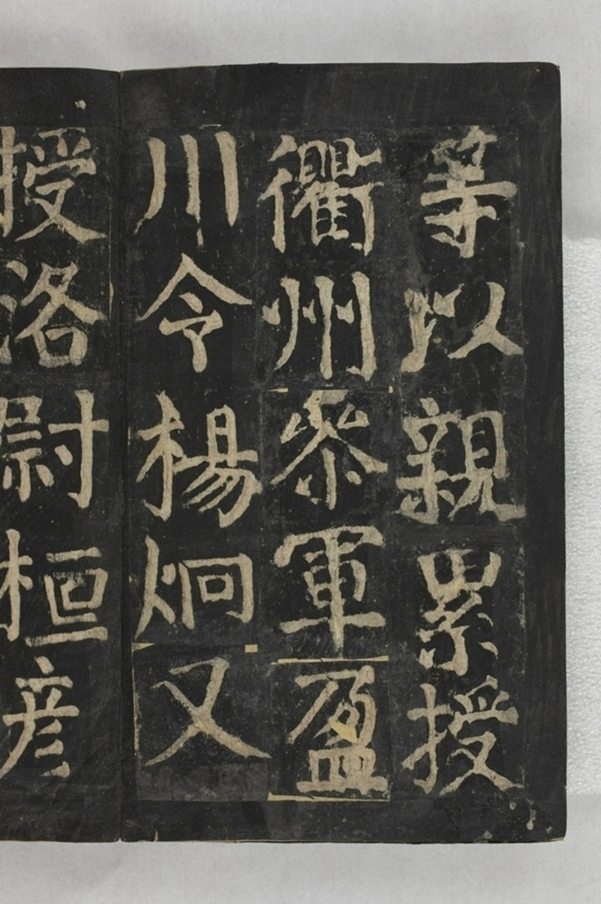 等以親累授
衢州叅軍盈
川令楊炯又
授洛尉桓彦